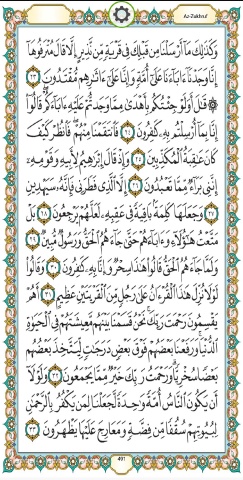 Az-Zukhruf
وَكَذَٰلِكَ مَآ أَرْسَلْنَا مِن قَبْلِكَ فِي قَرْيَةٍ مِّن نَّذِيرٍ إِلَّا قَالَ مُتْرَفُوهَآ
إِنَّا وَجَدْنَآ ءَابَآءَنَا عَلَىٰٓ أُمَّةٍ وَإِنَّا عَلَىٰٓ ءَاثَٰرِهِم مُّقْتَدُونَ ٢٣
۞ قَٰلَ أَوَلَوْ جِئْتُكُم بِأَهْدَىٰ مِمَّا وَجَدتُّمْ عَلَيْهِ ءَابَآءَكُمْ قَالُوٓا۟
إِنَّا بِمَآ أُرْسِلْتُم بِهِۦ كَٰفِرُونَ ٢٤ فَٱنتَقَمْنَا مِنْهُمْ فَٱنظُرْ كَيْفَ
كَانَ عَٰقِبَةُ ٱلْمُكَذِّبِينَ ٢٥ وَإِذْ قَالَ إِبْرَٰهِيمُ لِأَبِيهِ وَقَوْمِهِۦٓ
إِنَّنِي بَرَآءٌ مِّمَّا تَعْبُدُونَ ٢٦ إِلَّا ٱلَّذِي فَطَرَنِي فَإِنَّهُۥ سَيَهْدِينِ
٢٧ وَجَعَلَهَا كَلِمَةًۢ بَاقِيَةً فِي عَقِبِهِۦ لَعَلَّهُمْ يَرْجِعُونَ ٢٨ بَلْ
مَتَّعْتُ هَٰٓؤُلَآءِ وَءَابَآءَهُمْ حَتَّىٰ جَآءَهُمُ ٱلْحَقُّ وَرَسُولٌ مُّبِينٌ ٢٩
وَلَمَّا جَآءَهُمُ ٱلْحَقُّ قَالُوا۟ هَٰذَا سِحْرٌ وَإِنَّا بِهِۦ كَٰفِرُونَ ٣٠ وَقَالُوا۟
لَوْلَا نُزِّلَ هَٰذَا ٱلْقُرْءَانُ عَلَىٰ رَجُلٍ مِّنَ ٱلْقَرْيَتَيْنِ عَظِيمٍ ٣١ أَهُمْ
يَقْسِمُونَ رَحْمَتَ رَبِّكَ نَحْنُ قَسَمْنَا بَيْنَهُم مَّعِيشَتَهُمْ فِي ٱلْحَيَوٰةِ
ٱلدُّنْيَا وَرَفَعْنَا بَعْضَهُمْ فَوْقَ بَعْضٍ دَرَجَٰتٍ لِّيَتَّخِذَ بَعْضُهُم
بَعْضًا سُخْرِيًّا وَرَحْمَتُ رَبِّكَ خَيْرٌ مِّمَّا يَجْمَعُونَ ٣٢ وَلَوْلَآ
أَن يَكُونَ ٱلنَّاسُ أُمَّةً وَٰحِدَةً لَّجَعَلْنَا لِمَن يَكْفُرُ بِٱلرَّحْمَٰنِ
لِبُيُوتِهِمْ سُقُفًا مِّن فِضَّةٍ وَمَعَارِجَ عَلَيْهَا يَظْهَرُونَ ٣٣
491